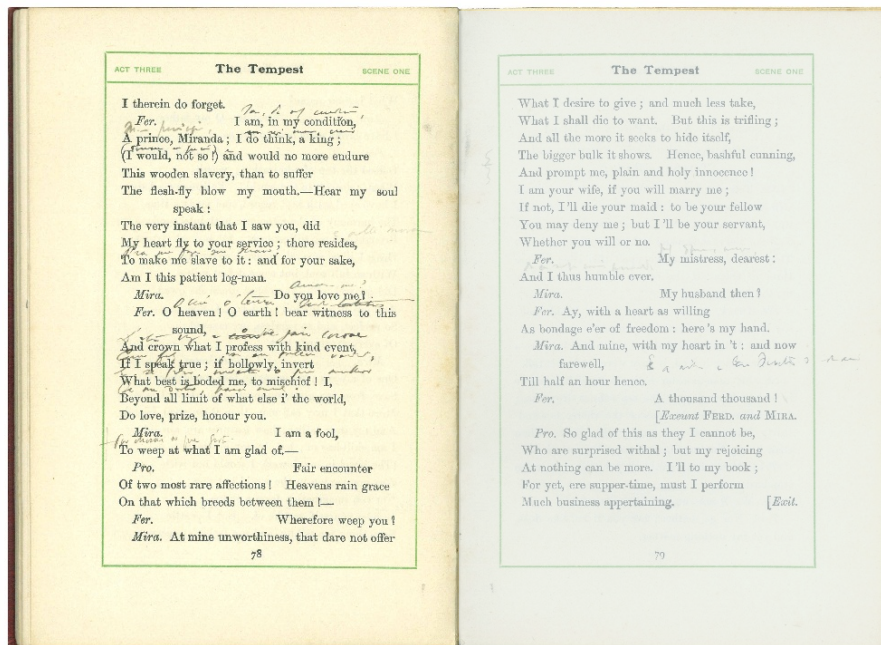 ACT THREE The Tempest SCENE ONE
I therein do forget.
Fer. I am, in my condition,
A prince, Miranda ; I do think, a king ;
(I would, not so !) and would no more endure
This wooden slavery, than to suffer
The flesh-fly blow my mouth.—Hear my soul
speak :
The very instant that I saw you, did
My heart fly to your service ; there resides,
To make me slave to it : and for your sake,
Am I this patient log-man.
Mira. Do you love me ?
Fer. O heaven ! O earth ! bear witness to this
sound,
And crown what I profess with kind event,
If I speak true ; if hollowly, invert
What best is boded me, to mischief ! I,
Beyond all limit of what else i' the world,
Do love, prize, honour you.
Mira. I am a fool,
To weep at what I am glad of.—
Pro. Fair encounter
Of two most rare affections ! Heavens rain grace
On that which breeds between them !—
Fer. Wherefore weep you ?
Mira. At mine unworthiness, that dare not offer
78
ACT THREE The Tempest SCENE ONE
What I desire to give ; and much less take,
What I shall die to want. But this is trifling ;
And all the more it seeks to hide itself,
The bigger bulk it shows. Hence, bashful cunning,
And prompt me, plain and holy innocence !
I am your wife, if you will marry me ;
If not, I'll die your maid : to be your fellow
You may deny me ; but I'll be your servant,
Whether you will or no.
Fer. My mistress, dearest :
And I thus humble ever.
Mira. My husband then ?
Fer. Ay, with a heart as willing
As bondage e'er of freedom : here's my hand.
Mira. And mine, with my heart in 't : and now
farewell,
Till half an hour hence.
Fer. A thousand thousand !
[Exeunt FERD. and MIRA.
Pro. So glad of this as they I cannot be,
Who are surprised withal ; but my rejoicing
At nothing can be more. I'll to my book ;
For yet, ere supper-time, must I perform
Much business appertaining. [Exit.
79